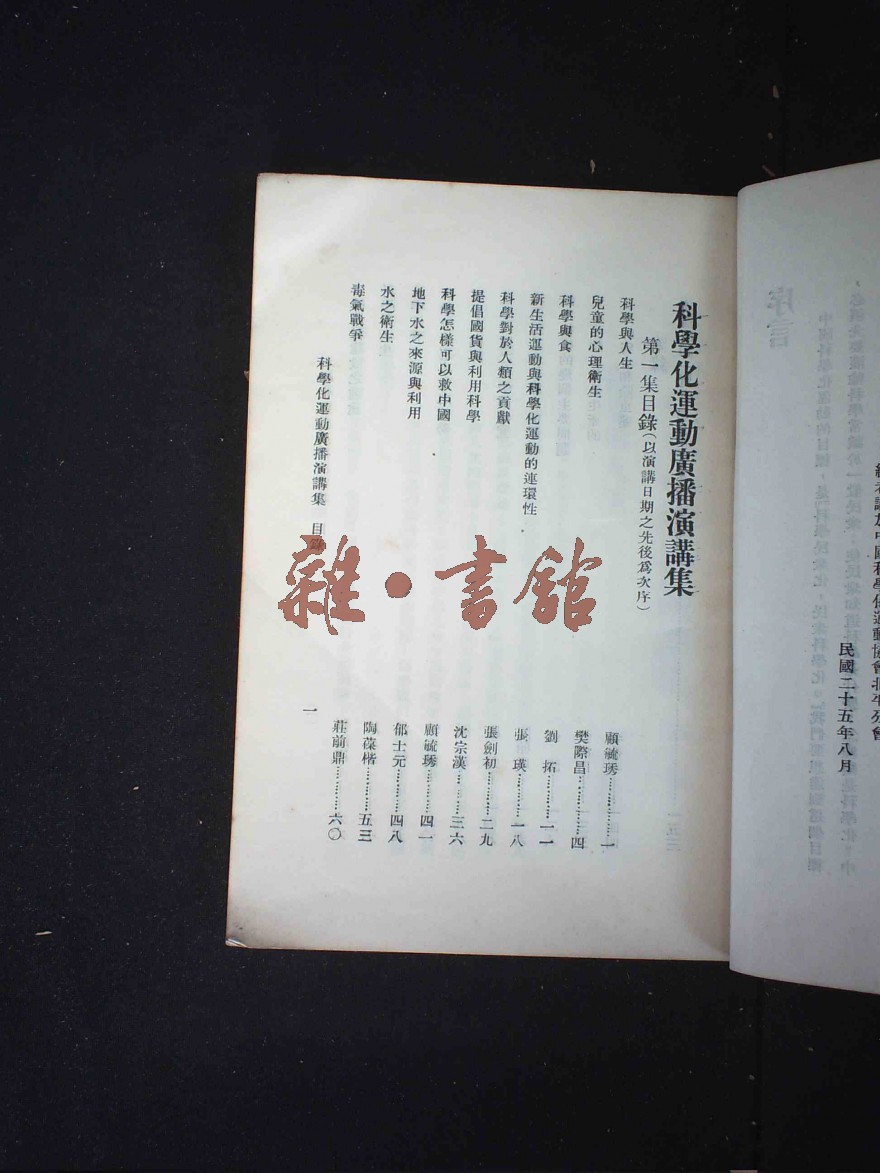 於中國科學化運動協會北平分會
民國二十五年八月
科學化運動廣播演講集
第一集目錄（以演講日期之先後爲次序）
科學與人生 顧毓琇…………一
兒童的心理衛生 樊際昌…………四
科學與食 劉拓…………一一
新生活運動與科學化運動的連環性 張瑛…………一八
科學對於人類之貢獻 張劍初…………二九
提倡國貨與利用科學 沈宗漢…………三六
科學怎樣可以救中國 顧毓琇…………四一
地下水之來源與利用 郁士元…………四八
水之衛生 陶葆楷…………五三
毒氣戰爭 莊前鼎…………六〇
科學化運動廣播演講集 目錄 一
雜·書館